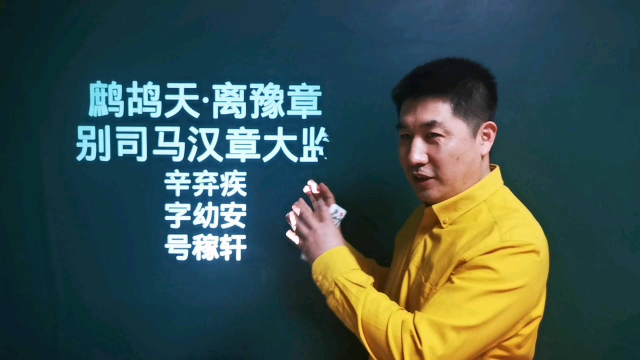 鹧鸪天·离豫章
别司马汉章大监
辛弃疾
字幼安
号稼轩